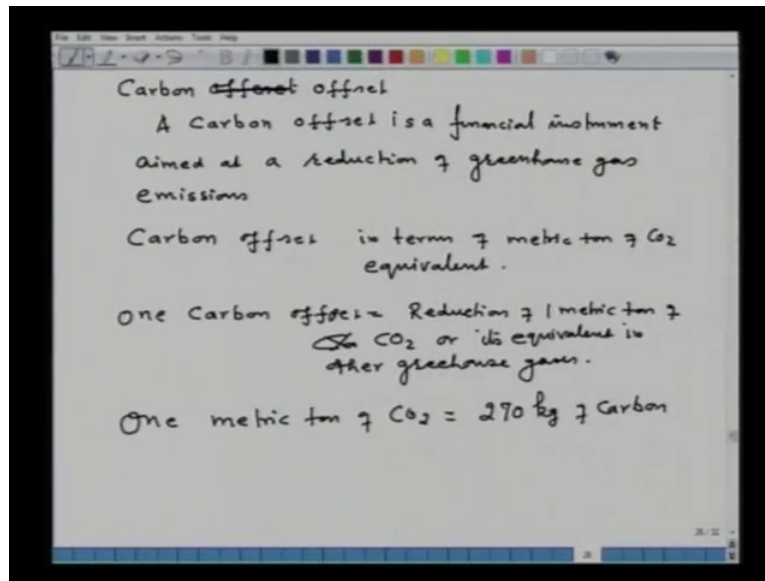 File Edit View Insert Actions Tools Help
Carbon offset
A Carbon offset is a financial instrument
aimed at a reduction of greenhouse gas
emissions
Carbon offset in term of metric ton of CO2
equivalent.
One Carbon offset = Reduction of 1 metric ton of
CO2 or its equivalent in
other greehouse gases.
One metric ton of CO2 = 270 kg of Carbon